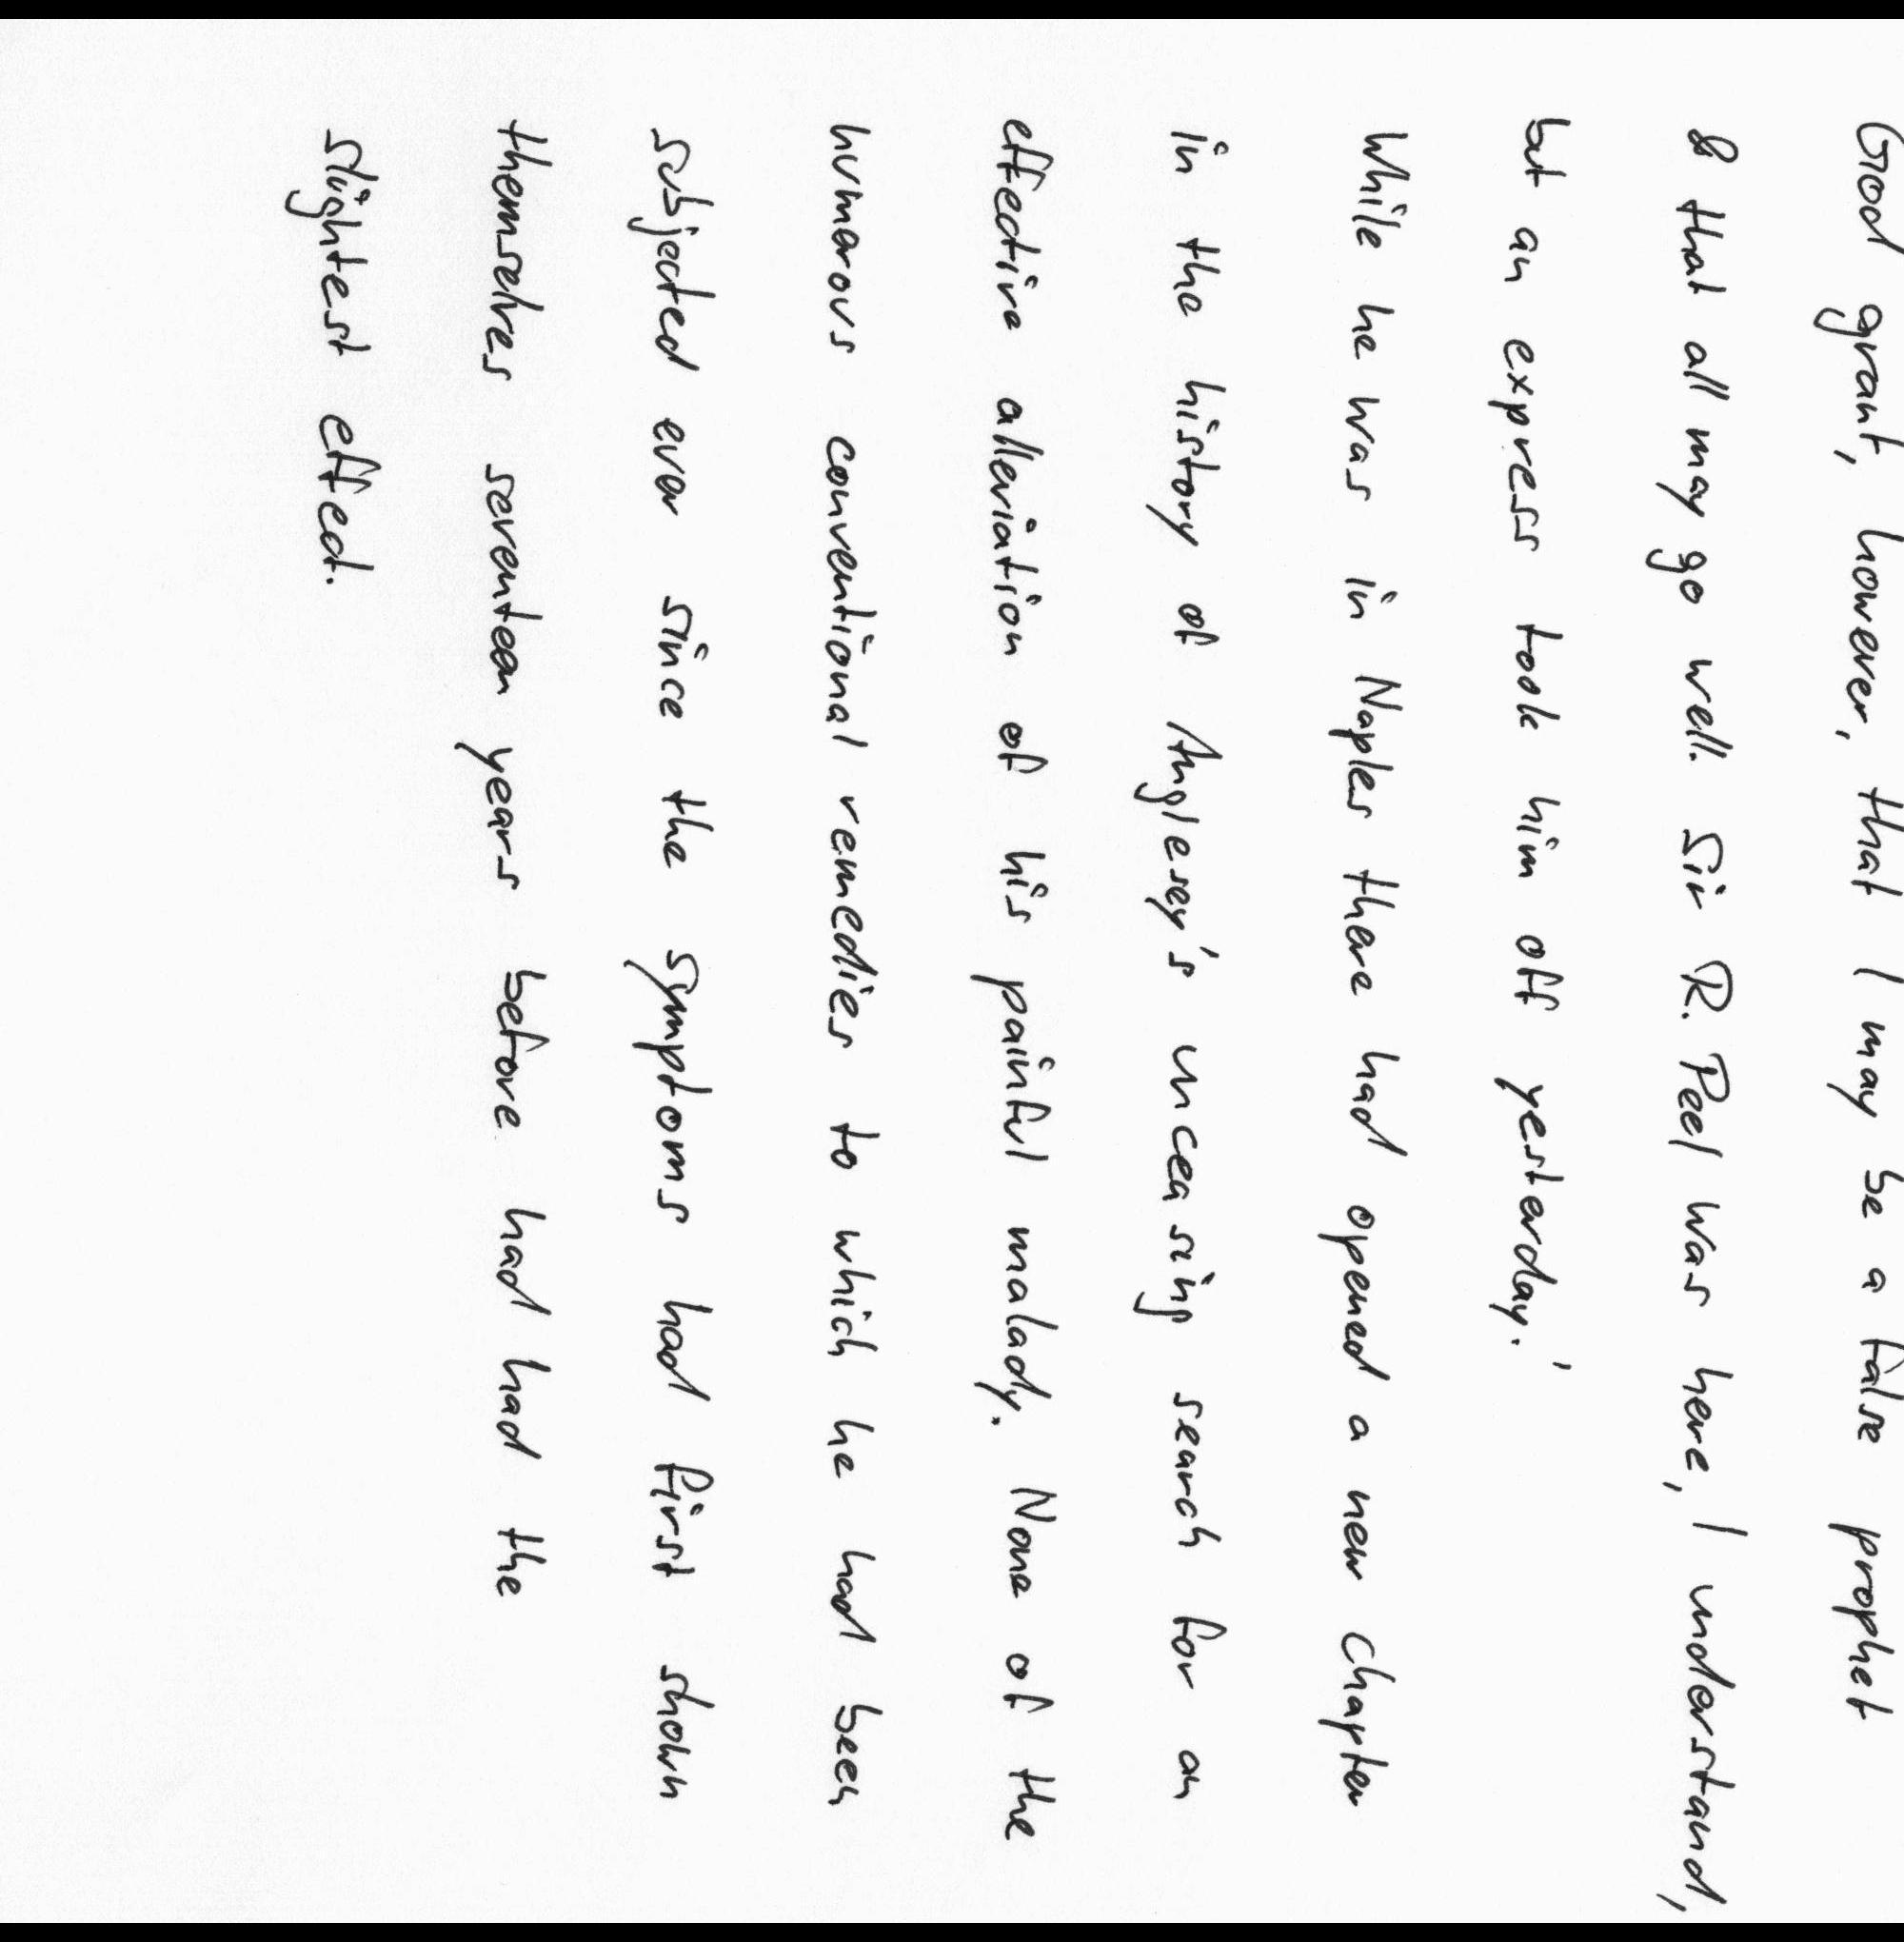 God grant, however, that I may be a false prophet
& that all may go well. Sir R. Peel was here, I understand,
but an express took him off yesterday.'
While he was in Naples there had opened a new chapter
in the history of Anglesey's unceasing search for an
effective alleviation of his painful malady. None of the
humorous conventional remedies to which he had been
subjected ever since the symptoms had first shown
themselves seventeen years before had had the
slightest effect.